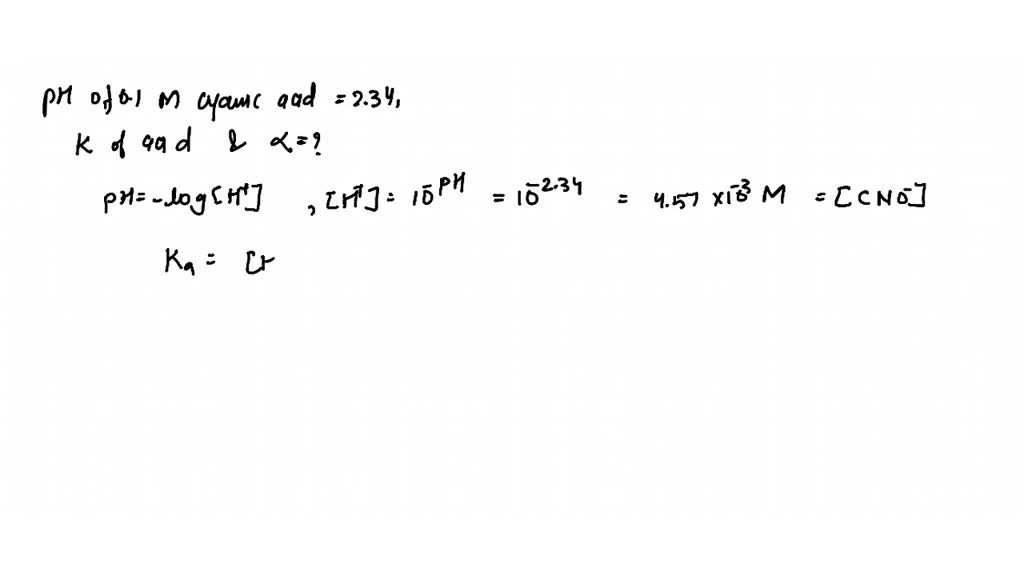 pH of 0.1 M cyanic acid = 2.34,
K of acid & α=?
pH = -log[H⁺] , [H⁺] = 10^-pH = 10^-2.34 = 4.57 ×10^-3 M = [CNO⁻]
Ka = [H